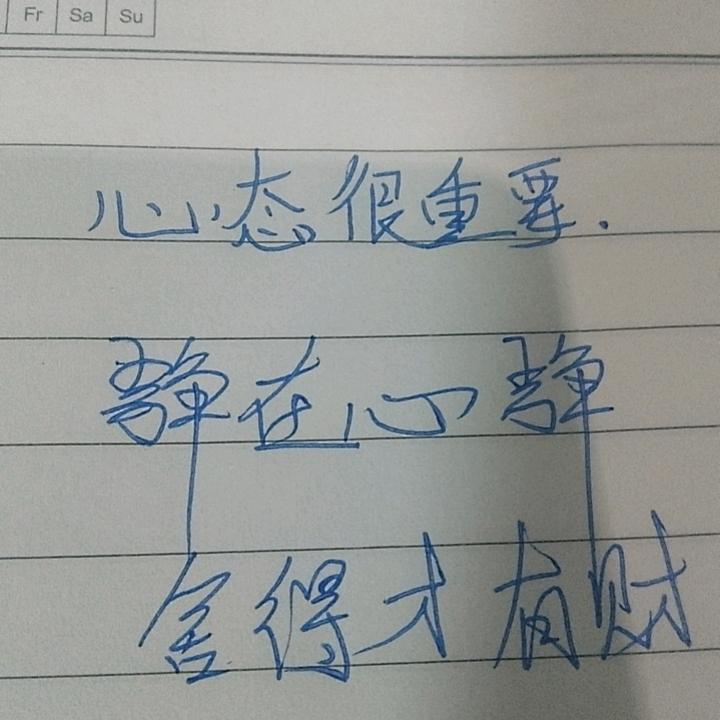 Fr Sa Su
心态很重要.
静在心静
舍得才有财